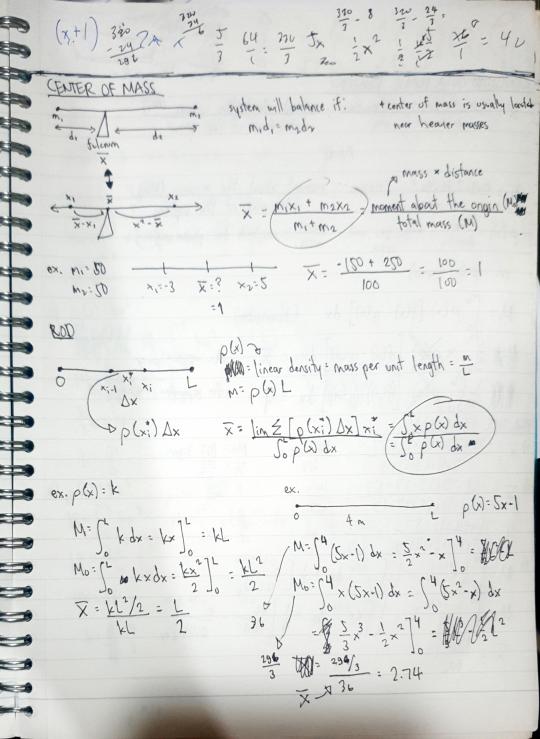 (x,+1) 320 - 24 296 5/3 64/1 = 320/3 5x 1/2 x² 320/3 - 8 320/3 - 24/3 =
CENTER OF MASS
m₁ m₂
d₁ d₂
fulcrum
x̄
system will balance if:
m₁d₁ = m₂d₂
+ center of mass is usually located
near heavier masses
mass × distance
x₁ x̄ x₂
x̄-x₁ x²-x̄
x̄ = (m₁x₁ + m₂x₂)/(m₁+m₂) = moment about the origin/total mass (M)
ex. m₁=50
m₂=50
x₁=-3 x̄=? x₂=5
=1
x̄ = (-150 + 250)/100 = 100/100 = 1
ROD
0 xᵢ₋₁ xᵢ* xᵢ L
Δx
ρ(xᵢ*) Δx
ρ(x)
= linear density = mass per unit length = m/L
m = ρ(x) L
x̄ = lim Σ [ρ(xᵢ*) Δx] xᵢ* / ∫₀ᴸ ρ(x) dx = ∫₀ᴸ x ρ(x) dx / ∫₀ᴸ ρ(x) dx
ex. ρ(x) = k
M = ∫₀ᴸ k dx = kx]₀ᴸ = kL
M₀ = ∫₀ᴸ kx dx = kx²/2]₀ᴸ = kL²/2
x̄ = (kL²/2)/kL = L/2
ex.
0 4 m L
ρ(x) = 5x-1
M = ∫₀⁴ (5x-1) dx = 5/2 x² - x]₀⁴ =
M₀ = ∫₀⁴ x(5x-1) dx = ∫₀⁴ (5x²-x) dx
36
= 5/3 x³ - 1/2 x²]₀⁴ =
296/3
= (296/3)/36 = 2.74
x̄